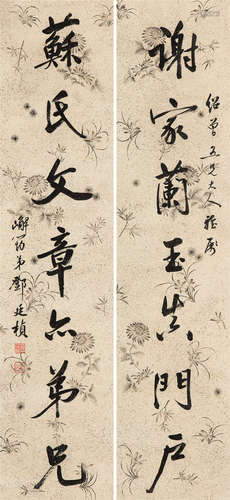 紹曾五兄大人雅屬
謝家蘭玉真門戶
蘇氏文章亦弟兄
嶰筠弟鄧廷楨